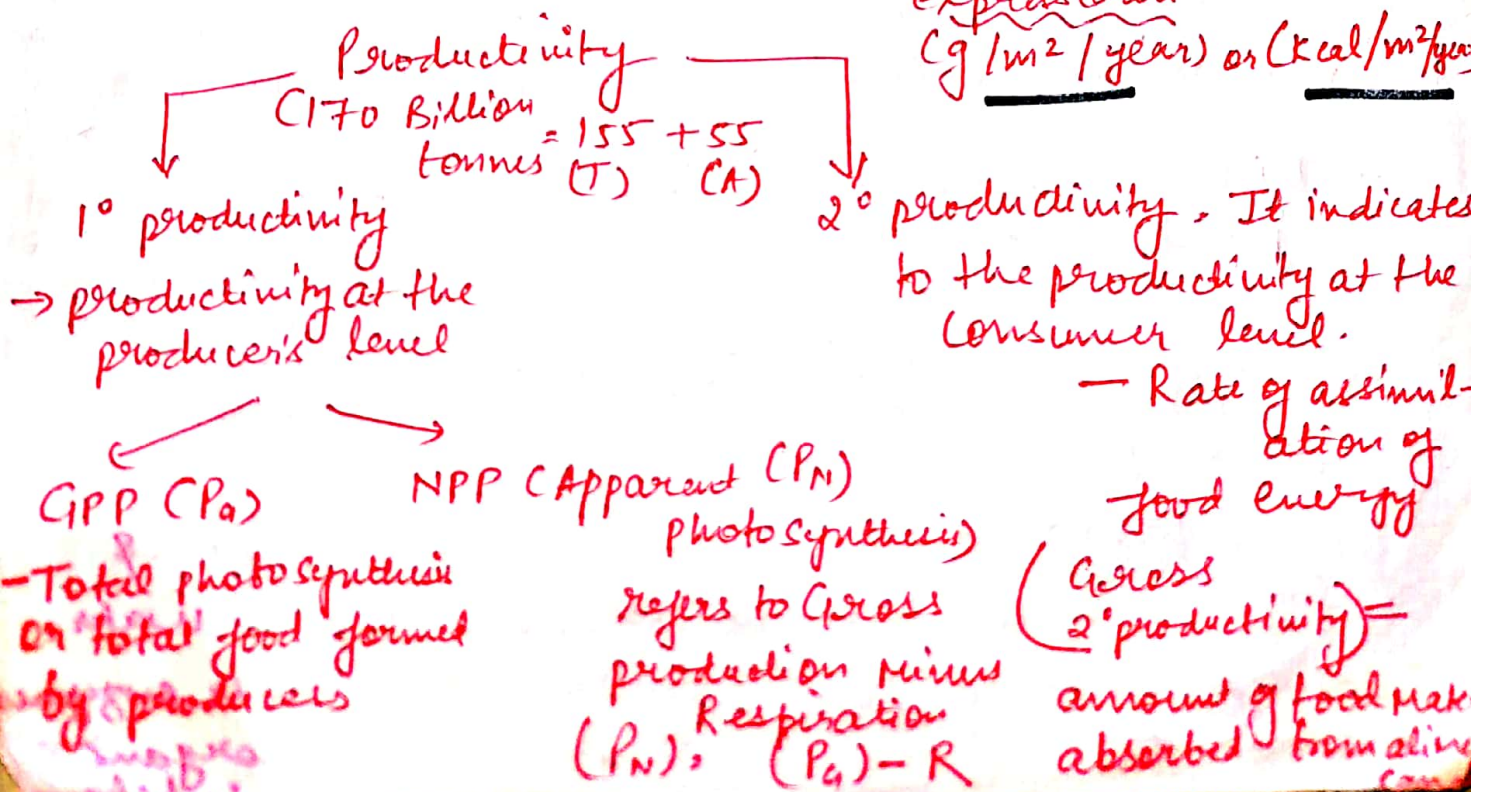 (g/m²/year) or (Kcal/m²/year
Productivity
(170 Billion
tonnes = 155 + 55
(T) (A)
1° productivity
→ productivity at the
producer's level
GPP (PG)
- Total photosynthesis
or total food formed
by producers
NPP (Apparent (PN)
photosynthesis)
refers to Gross
production minus
Respiration
(PN) = (PG) - R
2° productivity. It indicates
to the productivity at the
consumer level.
- Rate of assimil-
ation of
food energy
(Gross
2° productivity) =
amount of food
absorbed from